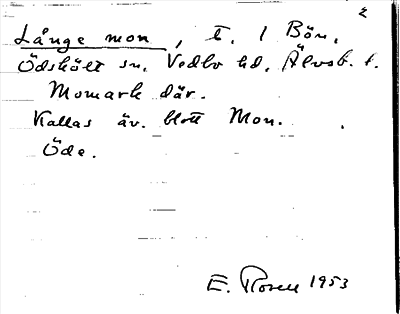 2
Långe mon, t. 1 Bön.
Ödskölt sn. Vedbo hd. Älvsb. l.
Momark där.
Kallas äv. blott Mon.
Öde.
E. Rosell 1953